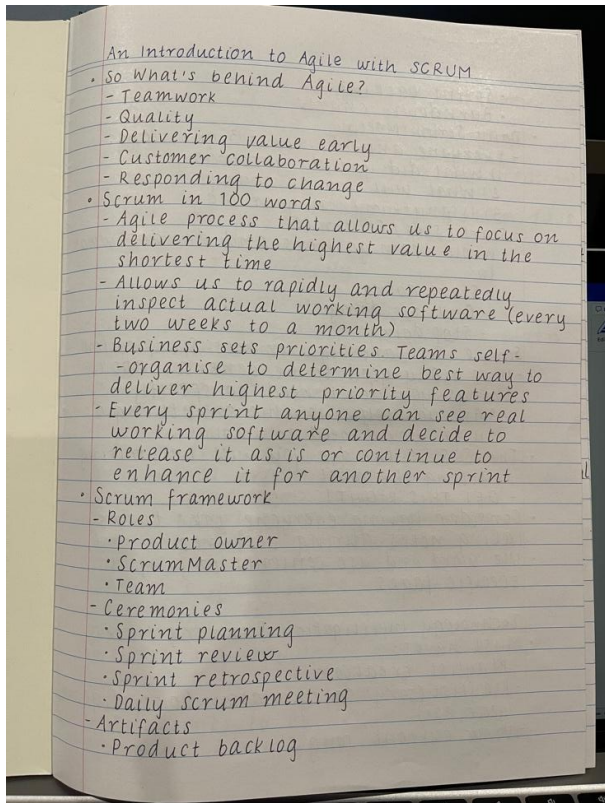 An Introduction to Agile with SCRUM
• So What's behind Agile?
- Teamwork
- Quality
- Delivering value early
- Customer collaboration
- Responding to change
• Scrum in 100 words
- Agile process that allows us to focus on
delivering the highest value in the
shortest time
- Allows us to rapidly and repeatedly
inspect actual working software (every
two weeks to a month)
- Business sets priorities. Teams self-
-organise to determine best way to
deliver highest priority features
- Every sprint anyone can see real
working software and decide to
release it as is or continue to
enhance it for another sprint
• Scrum framework
- Roles
• Product owner
• ScrumMaster
• Team
- Ceremonies
• Sprint planning
• Sprint review
• Sprint retrospective
• Daily scrum meeting
- Artifacts
• Product backlog